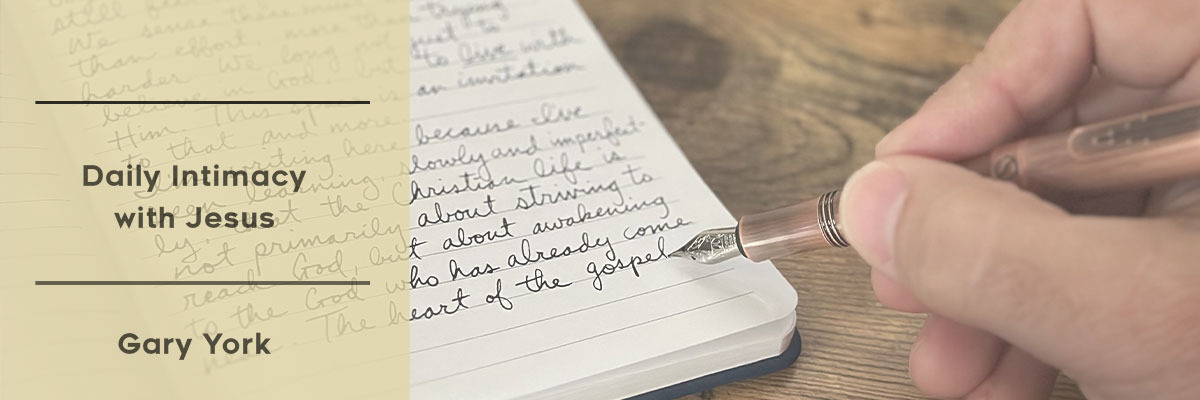 Daily Intimacy
with Jesus
Gary York
still
We sense there must
than effort, more than trying
harder. We long not just to
believe in God, but to live with
Him. This space is an invitation
to that and more.
writing here because I've
been learning, slowly and imperfect-
ly, that the Christian life is
not primarily about striving to
reach God, but about awakening
to the God who has already come
near. The heart of the gospel